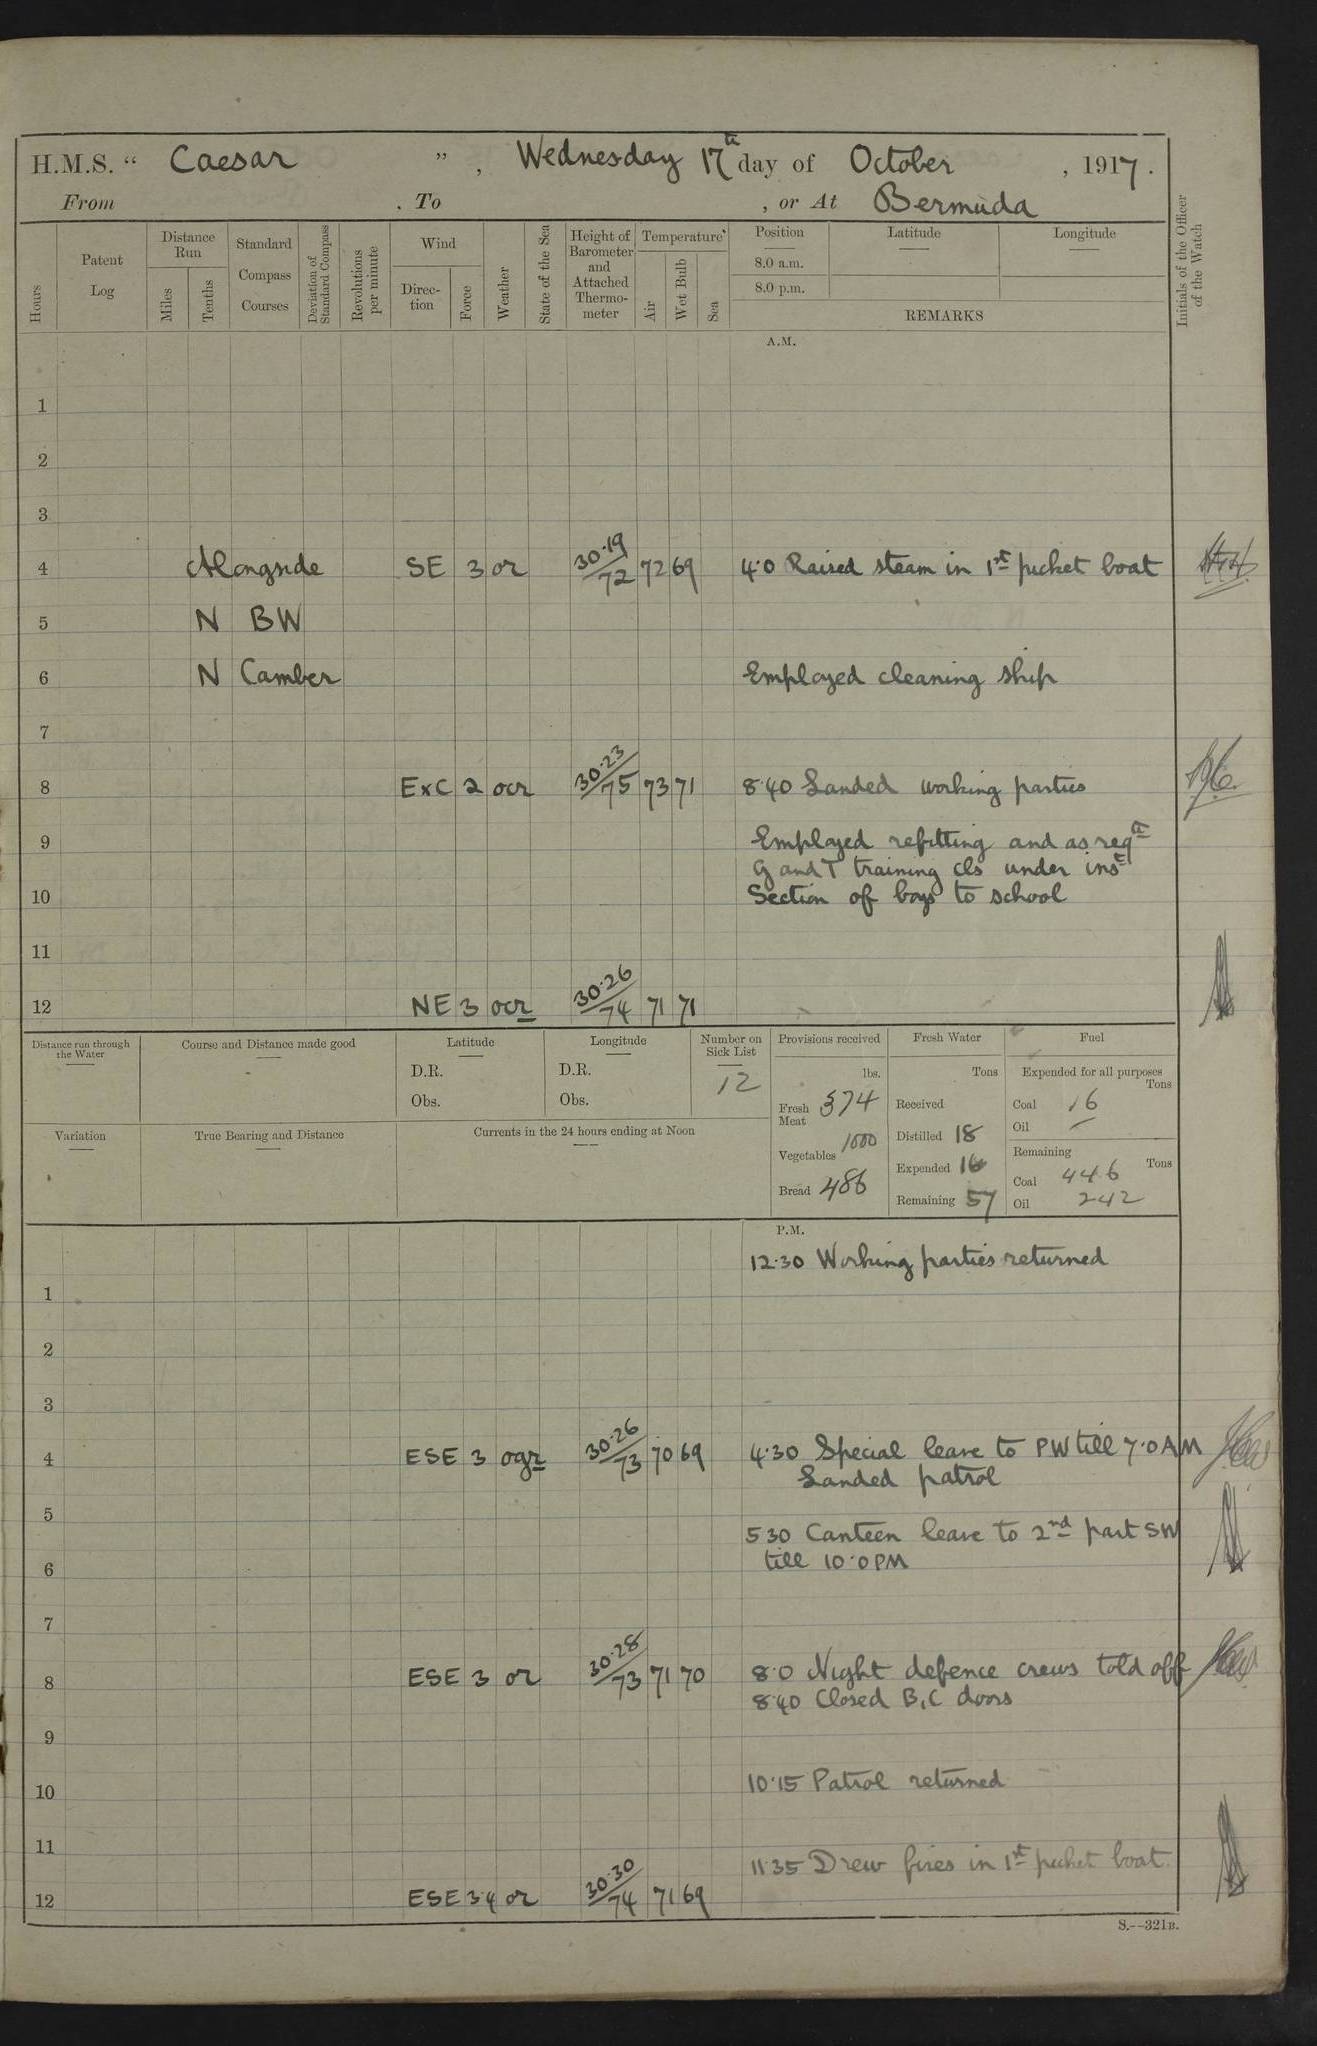 H.M.S. “ Caesar ” , Wednesday 17th day of October , 1917.
From . To , or At Bermuda
Hours
Patent Log
Distance Run
Miles
Tenths
Standard Compass Courses
Deviation of Standard Compass
Revolutions per minute
Wind
Direction
Force
Weather
State of the Sea
Height of Barometer and Attached Thermometer
Temperature
Air
Wet Bulb
Sea
Position
8.0 a.m.
8.0 p.m.
Latitude
Longitude
REMARKS
Initials of the Officer of the Watch
A.M.
1
2
3
4 Alongside SE 3 or 30·19/72 72 69 4·0 Raised steam in 1st picket boat
5 N BW
6 N Camber Employed cleaning ship
7
8 ExC 2 ocr 30·23/75 73 71 8·40 Landed working parties
9 Employed refitting and as reqd
G and T training cls under inst
10 Section of boys to school
11
12 NE 3 ocr 30·26/74 71 71
Distance run through the Water
Course and Distance made good
Latitude
D.R.
Obs.
Longitude
D.R.
Obs.
Number on Sick List
12
Provisions received
lbs.
Fresh Meat 374
Vegetables 1000
Bread 486
Fresh Water
Tons
Received
Distilled 18
Expended 16
Remaining 57
Fuel
Expended for all purposes
Tons
Coal 16
Oil –
Remaining
Tons
Coal 446
Oil 242
Variation
True Bearing and Distance
Currents in the 24 hours ending at Noon
P.M.
12·30 Working parties returned
1
2
3
4 ESE 3 ogr 30·26/73 70 69 4·30 Special leave to PW till 7·0 AM
Landed patrol
5
5 30 Canteen leave to 2nd part SW
6 till 10·0 PM
7
8 ESE 3 or 30·28/73 71 70 8·0 Night defence crews told off
8·40 Closed B, C doors
9
10 10·15 Patrol returned
11 11·35 Drew fires in 1st picket boat.
12 ESE 3·4 or 30·30/74 71 69
S.—321B.